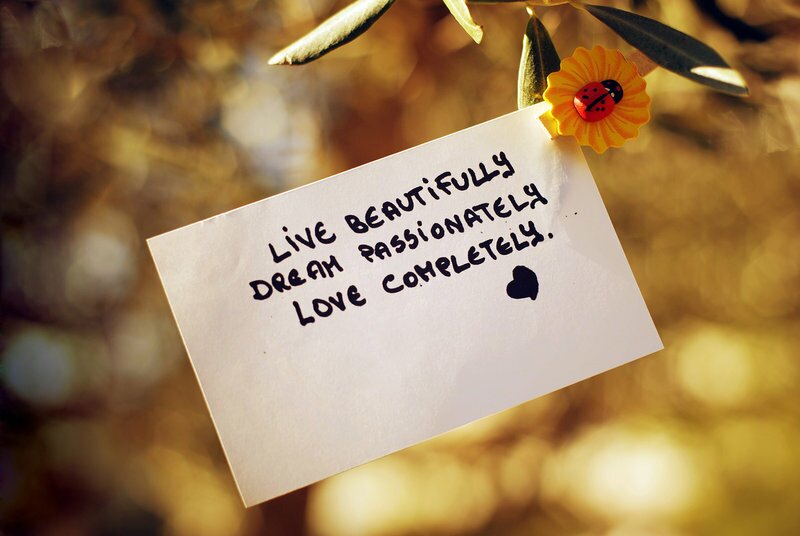 LiVE BEAUTiFULLY
DREAM PASSiONATELY
LOVE COMPLETELY.